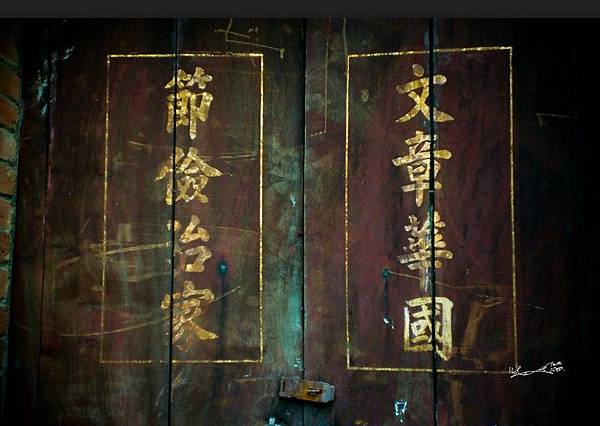 文章華國
節儉治家